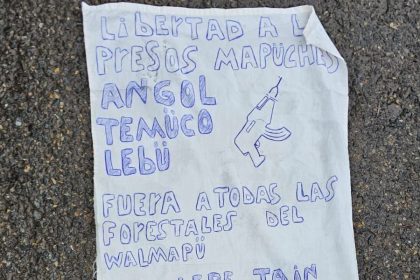 LIBERTAD A L
PRESOS MAPUCHES
ANGOL
TEMÜCO
LEBÜ
FUERA A TODAS LAS
FORESTALES DEL
WALMAPÜ
TAIN